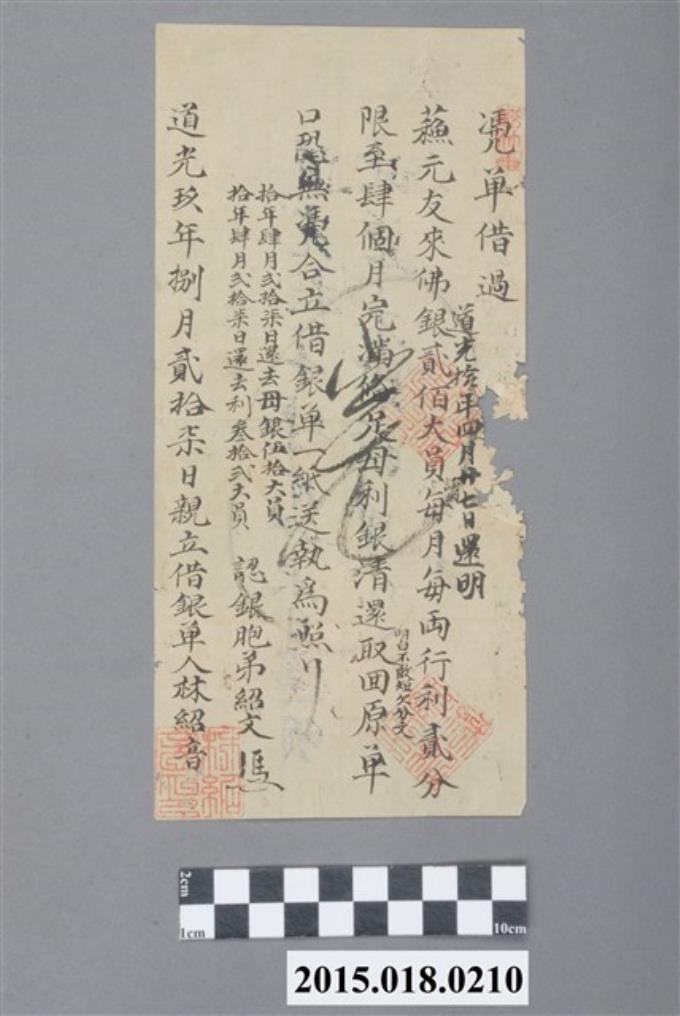 憑单借過
道光拾年四月廿七日還明
蘓元友來佛銀貳佰大員每月每両行利貳分
限至肆個月完滿俻足母利銀清還取回原单
明白不敢短欠分文
口恐無憑合立借銀单一紙送執為照
拾年肆月弍拾柒日還去母銀伍拾大員
拾年肆月弍拾柒日還去利叁拾弍大員
認銀胞弟紹文憑
道光玖年捌月貳拾柒日親立借銀单人林紹音
2cm
1cm
10cm
2015.018.0210